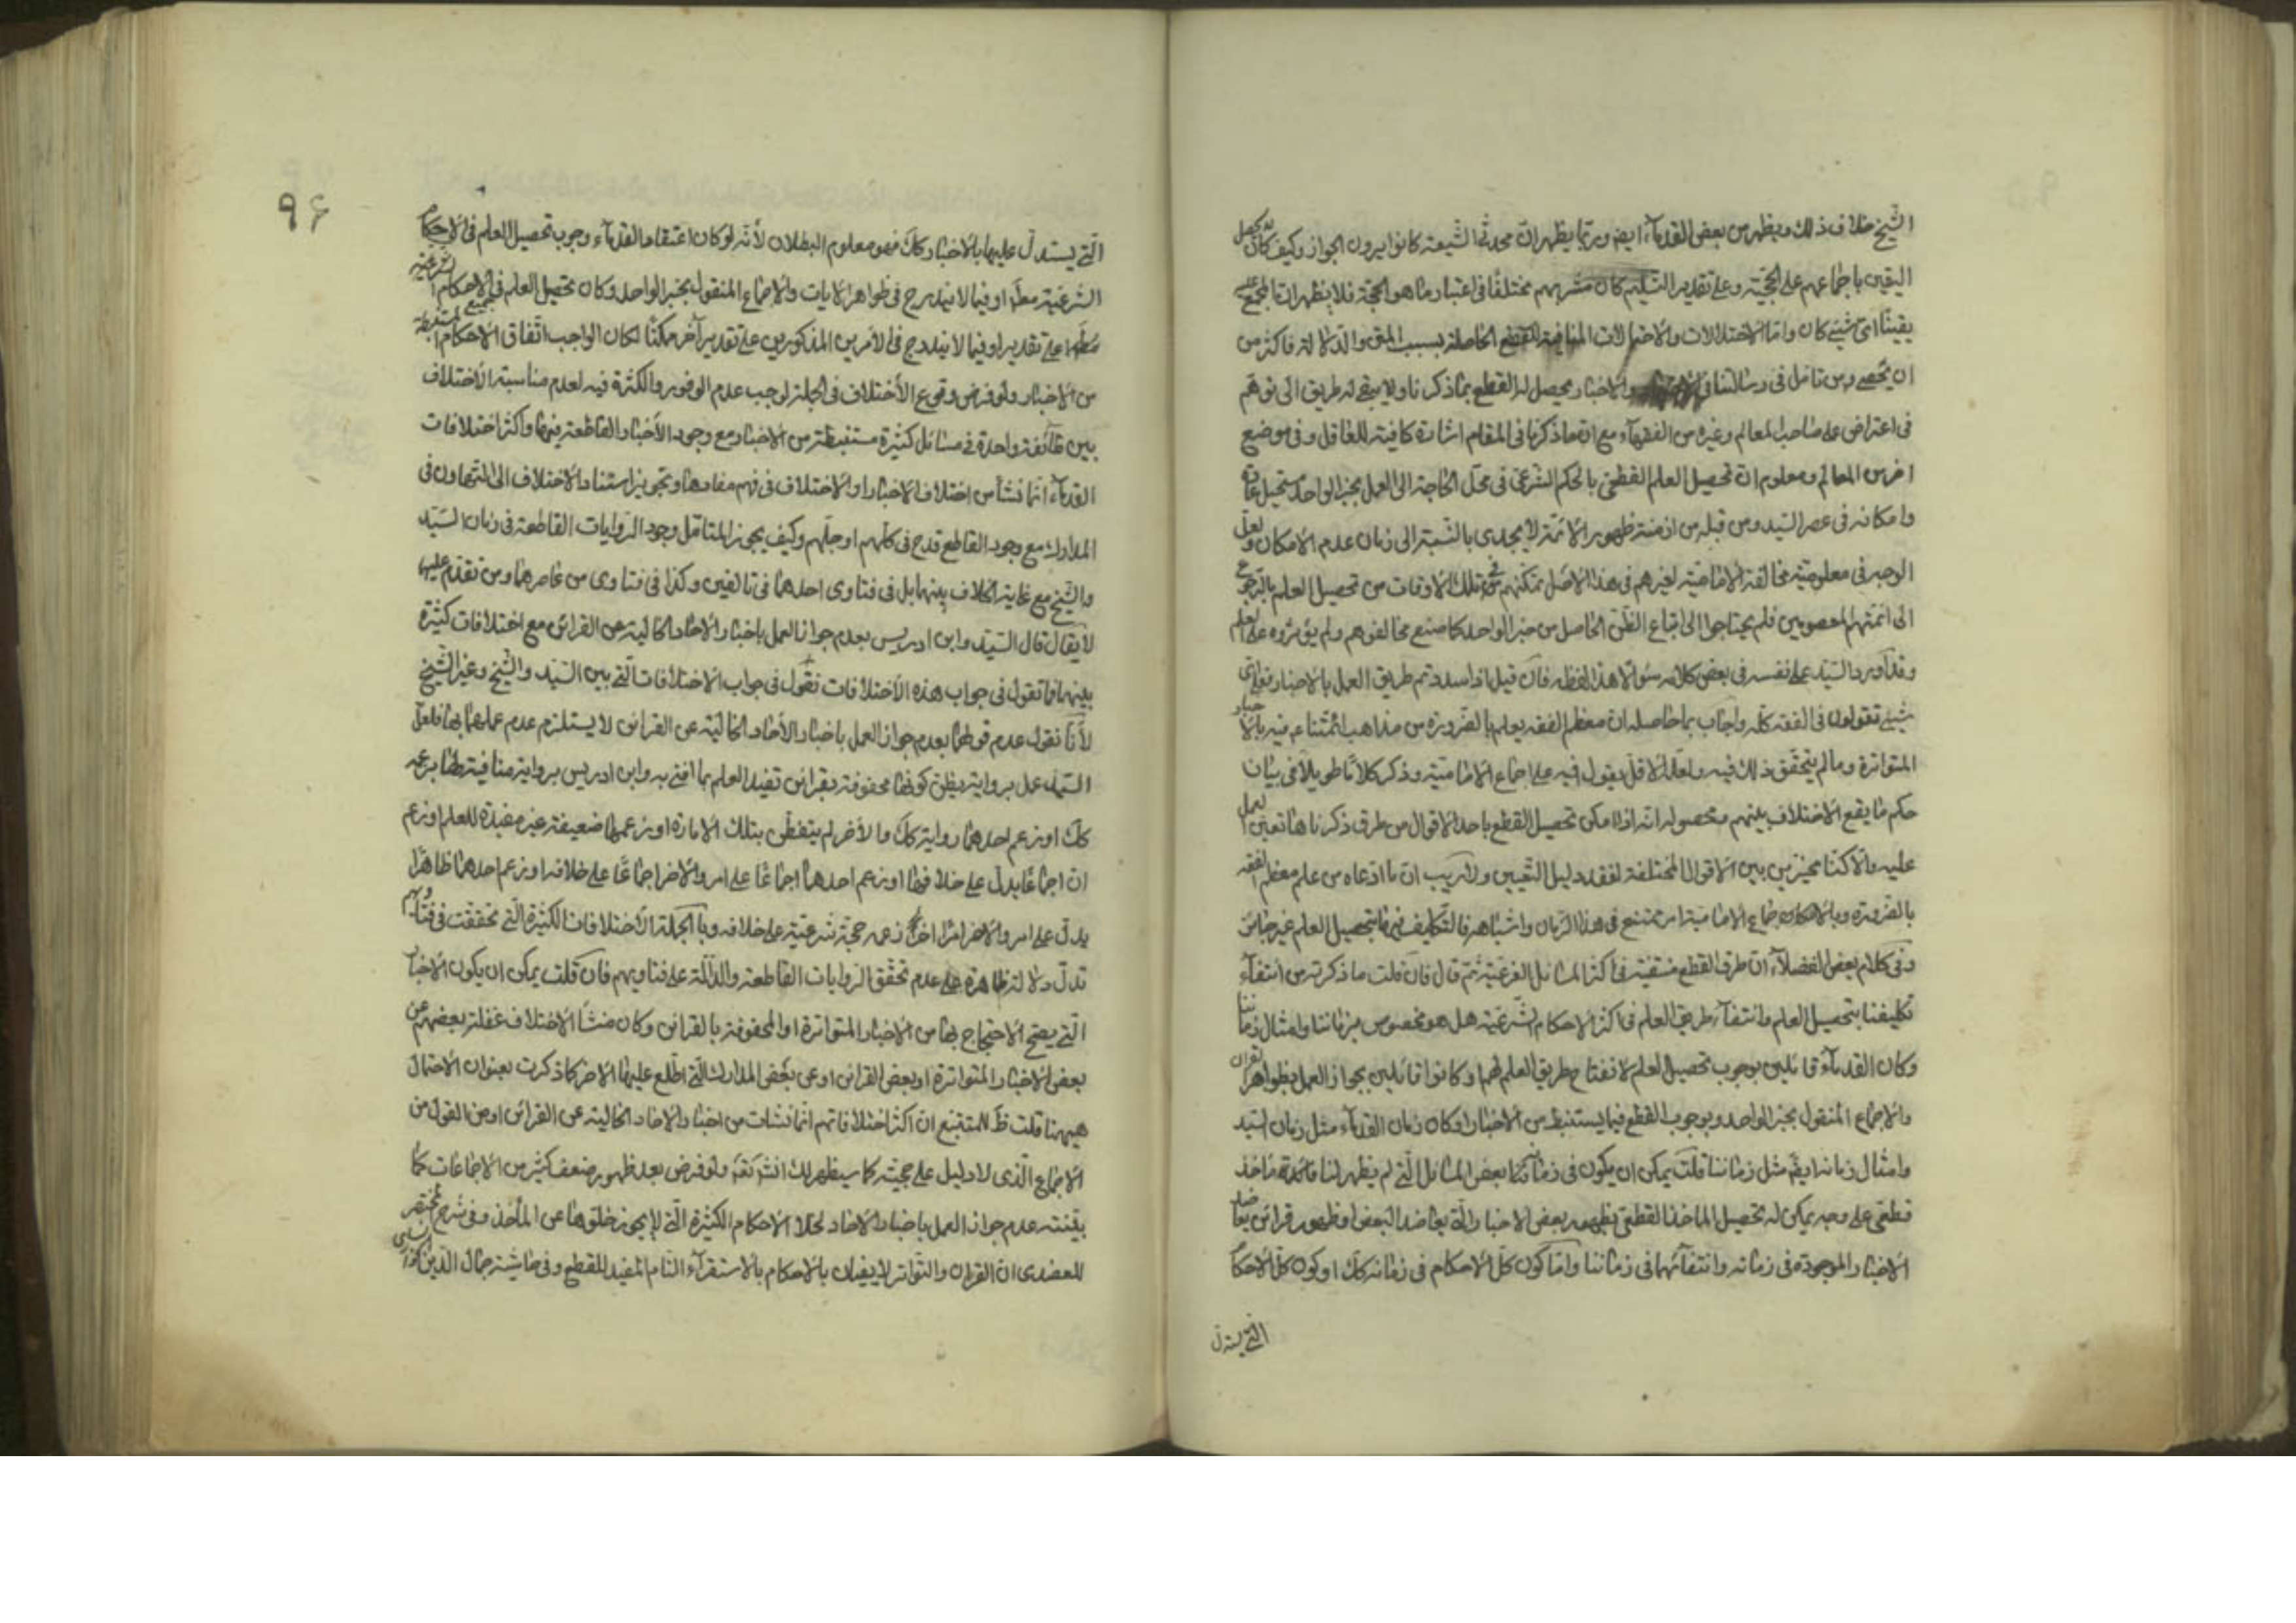 الشيخ خلاف ذلك ويظهر من بعض القدماء ايض وربما يظهر ان محدثى الشيعة كانوا يرون الجواز وكيف كان يحصل
اليقين باجماعهم على الحجية وعلى تقدير التسليم كان مشربهم مختلفا فى اعتبار ما هو الحجة فلا يظهر ان المجمع عليه
يقينا اى شيئ كان واما الاختلالات والاحتمالات المنافية للقطع الحاصلة بسبب المتن والدلالة فاكثر من
ان يحصى ومن تامل فى رسالتنا فى والاخبار يحصل له القطع بما ذكرنا ولا يبقى له طريق الى توهم
فى اعتراض على صاحب المعالم وغيره من الفقهاء مع ان ما ذكرنا فى المقام اشارة كافية للغافل وفى موضع
اخر من المعالم ومعلوم ان تحصيل العلم القطعى بالحكم الشرعى فى محل الحاجة الى العمل بخبر الواحد مستحيل عادة
وامكانه فى عصر السيد ومن قبله من ازمنة ظهور الائمة لا يجدى بالنسبة الى زمان عدم الامكان ولعل
الوجه فى معلومية مخالفة الامامية لغيرهم فى هذا الاصل تمكنهم فى تلك الاوقات من تحصيل العلم بالرجوع
الى ائمتهم المعصومين فلم يحتاجوا الى اتباع الظن الحاصل من خبر الواحد كما صنع مخالفوهم ولم يؤثروه على العلم
وقد اورد السيد على نفسه فى بعض كلامه سئوالا هذا لفظه فان قيل اذا سددتم طريق العمل بالاخبار فعلى اى
شيئ تعولون فى الفقه كله واجاب بما حاصله ان معظم الفقه يعلم بالضرورة من مذاهب ائمتنا ع فيه بالاخبار
المتواترة وما لم يتحقق ذلك فيه ولعله الاقل يعول فيه على اجماع الامامية وذكر كلاما طويلا فى بيان
حكم ما يقع الاختلاف بينهم ومحصوله انه اذا امكن تحصيل القطع باحد الاقوال من طرق ذكرناها تعين العمل
عليه والا كنا مخيرين بين الاقوال المختلفة لفقد دليل التعيين ولا ريب ان ما ادعاه من علم معظم الفقه
بالضرورة وباجماع الامامية امر ممتنع فى هذا الزمان واشباهه فالتكليف فيها بتحصيل العلم غير جائز
وفى كلام بعض الفضلاء ان طرق القطع منتفية فى اكثر المسائل الفرعية ثم قال فان قلت ما ذكرته من انتفاء
تكليفنا بتحصيل العلم وانتفاء طريق العلم فى اكثر الاحكام الشرعية هل هو مخصوص بزماننا وامثال زماننا
وكان القدماء قائلين بوجوب تحصيل العلم لانفتاح طريق العلم لهم او كانوا قائلين بجواز العمل بظواهر القران
والاجماع المنقول بخبر الواحد وبوجوب القطع فيما يستنبط من الاخبار او كان زمان القدماء مثل زمان السيد
وامثال زمانه ايض مثل زماننا قلت يمكن ان يكون فى زماننا بعض المسائل التى لم يظهر لنا ماخذ
قطعى على وجه يمكن له تحصيل الماخذ القطعى بظهور بعض الاخبار التى يعاضد البعض او ظهور قرائن تعاضد
الاخبار الموجودة فى زمانه وانتفائهما فى زماننا واما كون كل الاحكام فى زمانه كك او كون كل الاحكام
التى يستدل
٩٦
التى يستدل عليها بالاخبار كك فهو معلوم البطلان لانه لو كان اعتقاد القدماء وجوب تحصيل العلم فى الاحكام
الشرعية مطلقا او فيما لا يندرج فى ظواهر الايات والاجماع المنقول بخبر الواحد وكان تحصيل العلم فى جميع الاحكام الشرعية
على تقدير او فيما لا يندرج فى الامرين المذكورين على تقدير آخر ممكنا لكان الواجب اتفاق الاحكام المستنبطة
من الاخبار ولو فرض وقوع الاختلاف فى الجملة لوجب عدم الوفور والكثرة فيه لعدم مناسبة الاختلاف
بين طائفة واحدة فى مسائل كثيرة مستنبطة من الاخبار مع وجود الاخبار القاطعة فيها واكثر اختلافات
القدماء انما نشأ من اختلاف الاخبار او الاختلاف فى فهم مفادها وتجويز استناد الاختلاف الى التهاون فى
المدارك مع وجود القاطع قدح فى كلهم او جلهم وكيف يجوز المتامل وجود الروايات القاطعة فى زمان السيد
والشيخ مع غاية الخلاف بينهما بل فى فتاوى احدهما فى تاليفين وكذا فى فتاوى من عاصرهما ومن تقدم عليهما
لا يقال قال السيد وابن ادريس بعدم جواز العمل باخبار الاحاد الخالية عن القرائن مع اختلافات كثيرة
بينهما فما تقول فى جواب هذه الاختلافات نقول فى جواب الاختلافات التى بين السيد والشيخ وغير الشيخ
لانا نقول عدم قولهما بعدم جواز العمل باخبار الاحاد الخالية عن القرائن لا يستلزم عدم عملهما بها فلعل
السيد عمل برواية يظن كونها محفوفة بقرائن تفيد العلم بما افتى به وابن ادريس برواية منافية لها بزعمه
كك او زعم احدهما رواية كك والاخر لم يتفطن بتلك الامارة او زعمها ضعيفة غير مفيدة للعلم او زعم
ان اجماعا يدل على خلافها او زعم احدهما اجماعا على امر والاخر اجماعا على خلافه او زعم احدهما ظاهرا
يدل على امر والاخر امرا اخر زعمه حجة شرعية على خلافه وبالجملة الاختلافات الكثيرة التى تحققت فى فتاويهم
تدل دلالة ظاهرة على عدم تحقق الروايات القاطعة والدالة على فتاويهم فان قلت يمكن ان يكون الاخبار
التى يصح الاحتجاج بها من الاخبار المتواترة او المحفوفة بالقرائن وكان منشأ الاختلاف غفلة بعضهم عن
بعض الاخبار المتواترة او بعض القرائن او عن بعض المدارك التى اطلع عليها الاخر كما ذكرت بعنوان الاحتمال
هيهنا قلت ظ للمتتبع ان اكثر اختلافاتهم انما نشات من اخبار الاحاد الخالية عن القرائن او من القول من
الاجماع الذى لا دليل على حجيته كما سيظهر لك انش تعم ولو فرض بعد ظهور ضعف كثير من الاجماعات كما
بينته عدم جواز العمل باخبار الاحاد لخلا الاحكام الكثيرة التى لا يجوز خلوها عن الماخذ وفى شرح مختصر
للعضدى ان القران والتواتر لا يفيان بالاحكام بالاستقراء التام المفيد للقطع وفى حاشية جمال الدين